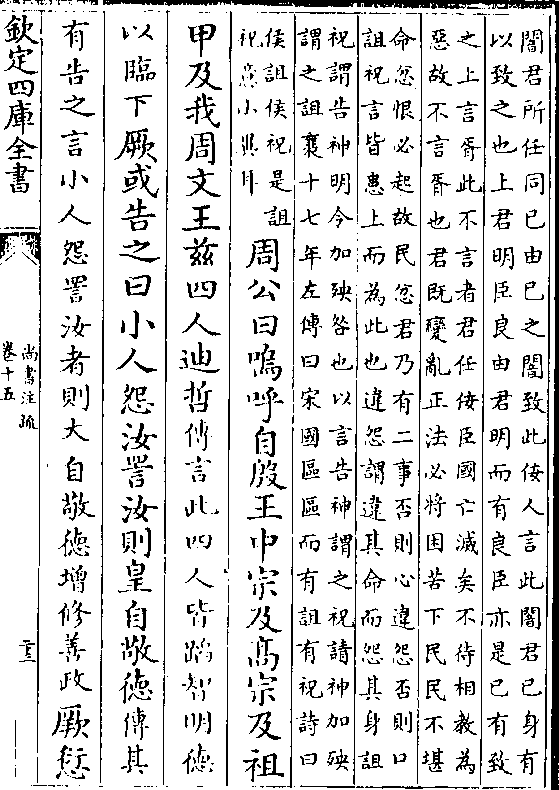 闇君所任同已由已之闇致此佞人言此闇君已身有
以致之也上君明臣良由君明而有良臣亦是已有致
之上言胥此不言者君任佞臣國亡滅矣不待相教為
惡故不言胥也君既變亂正法必將困苦下民民不堪
命忿恨必起故民忿君乃有二事否則心違怨否則口
詛祝言皆患上而為此也違怨謂違其命而怨其身詛
祝謂告神明令加殃咎也以言告神謂之祝請神加殃
謂之詛襄十七年左傳曰宋國區區而有詛有祝詩曰
侯詛侯祝是詛
祝意小異耳
周公曰嗚呼自殷王中宗及高宗及祖
甲及我周文王茲四人迪哲傳言此四人皆蹈智明德
以臨下厥或告之曰小人怨汝詈汝則皇自敬德傳其
有告之言小人怨詈汝者則大自敬德增修善政厥愆
欽定四庫全書
尚書注疏
卷十五